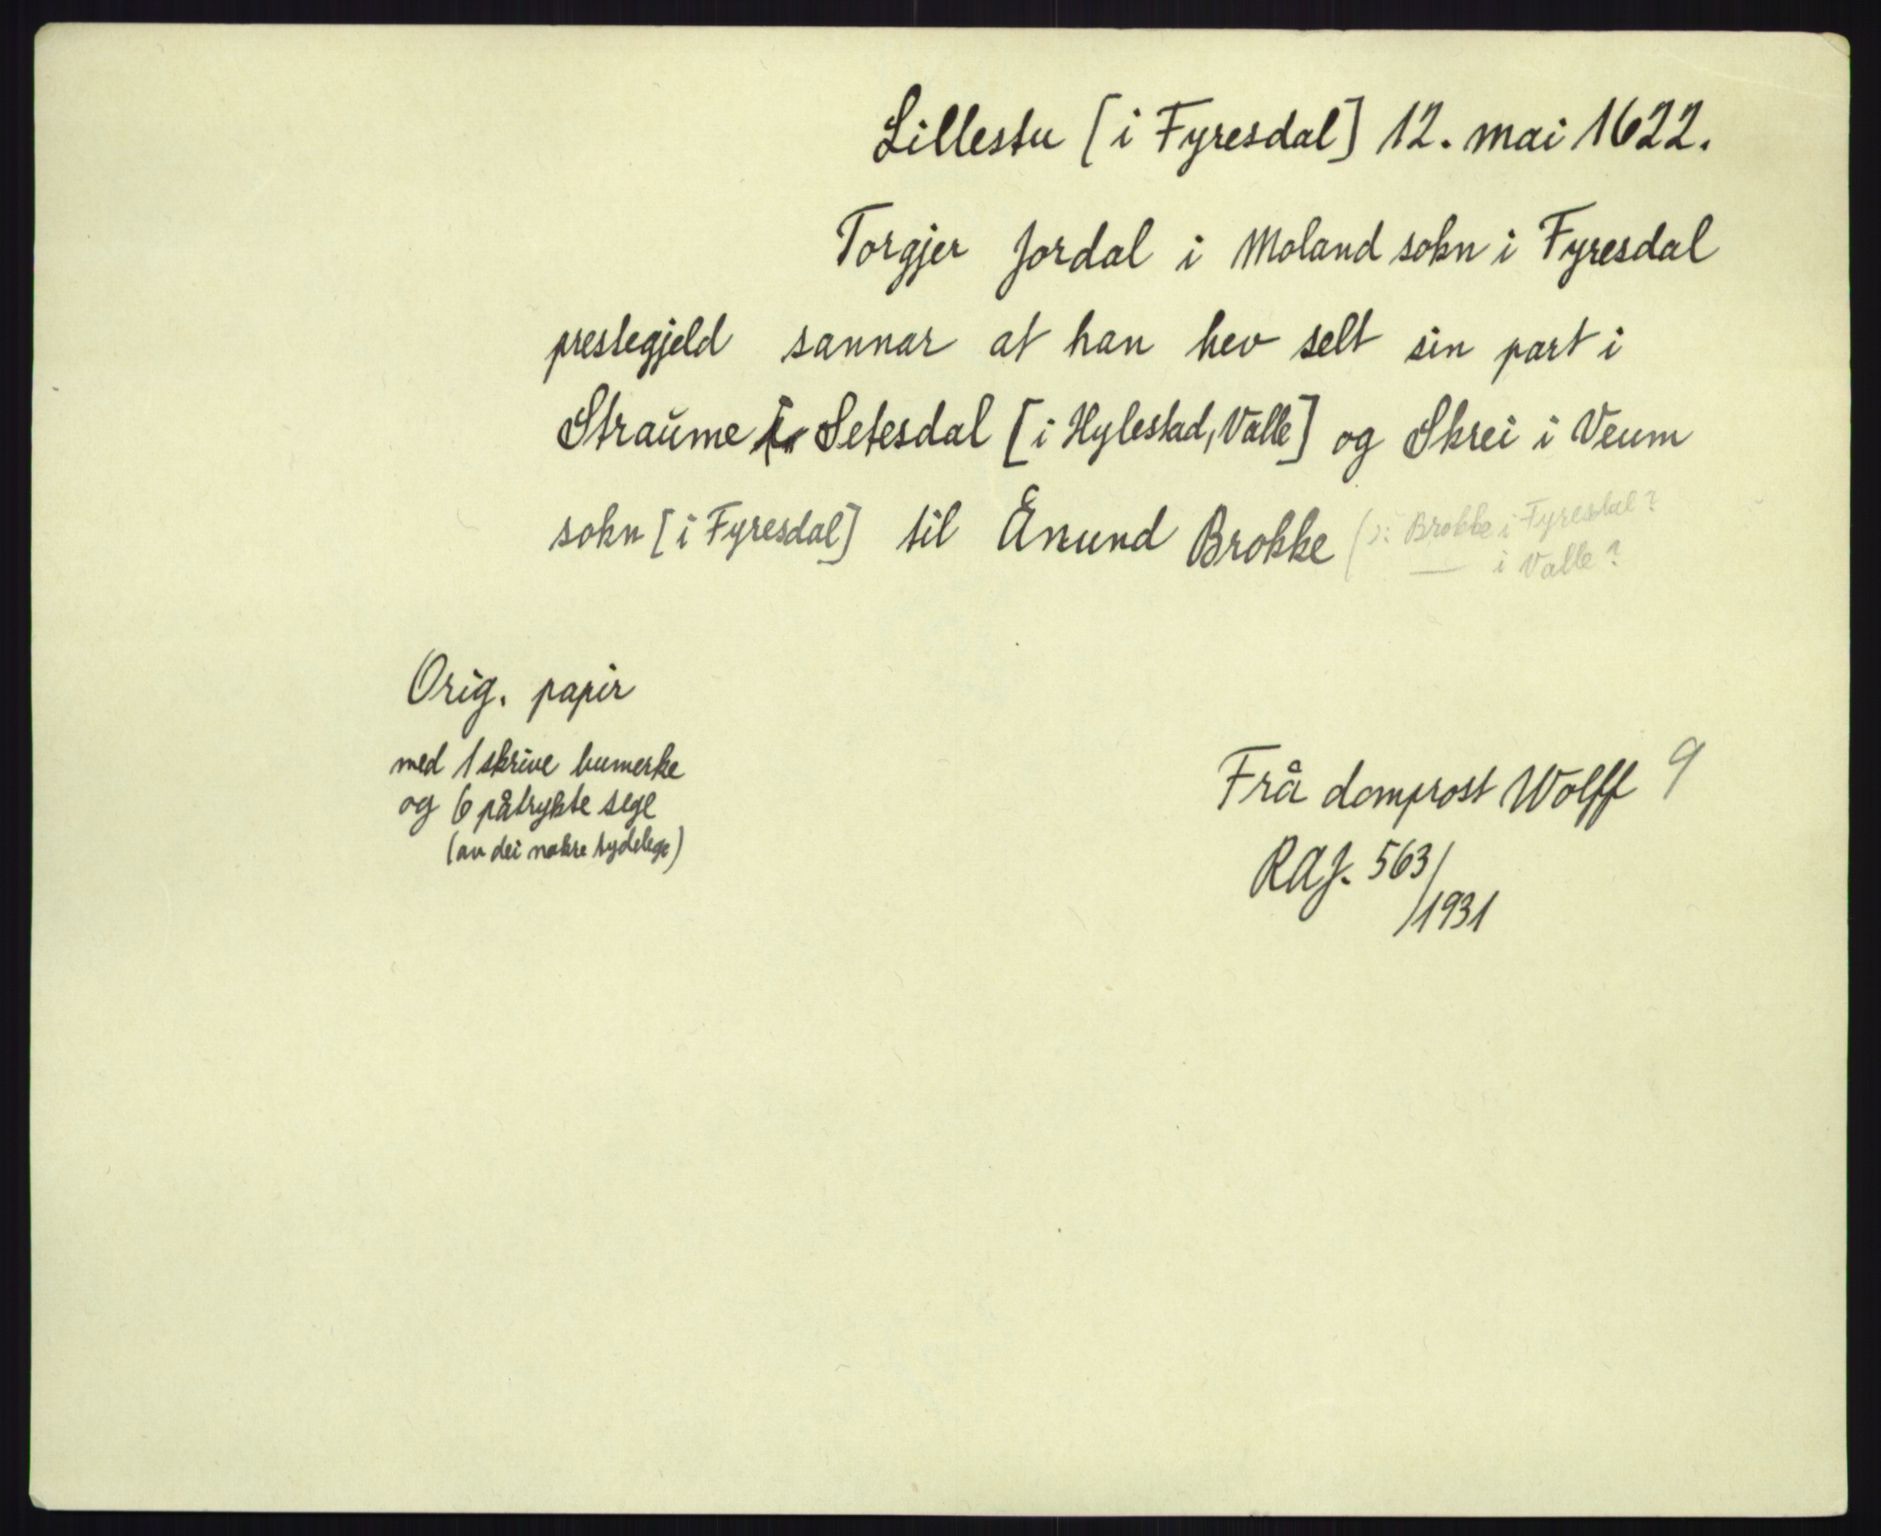 Lillestu [i Fyresdal] 12. mai 1622.
Torgjer Jordal i Moland sokn i Fyresdal
prestegjeld sannar at han hev selt sin part i
Straume i Setesdal [i Hylestad, Valle] og Skrei i Veum
sokn [i Fyresdal] til Ånund Brokke (ɔ: Brokke i Fyresdal?
— i Valle?
Orig. papir
med 1 skrive bumerke
og 6 påtrykte segl
(av dei nokre tydelege)
Frå domprost Wolff 9
RAJ. 563/
/1931